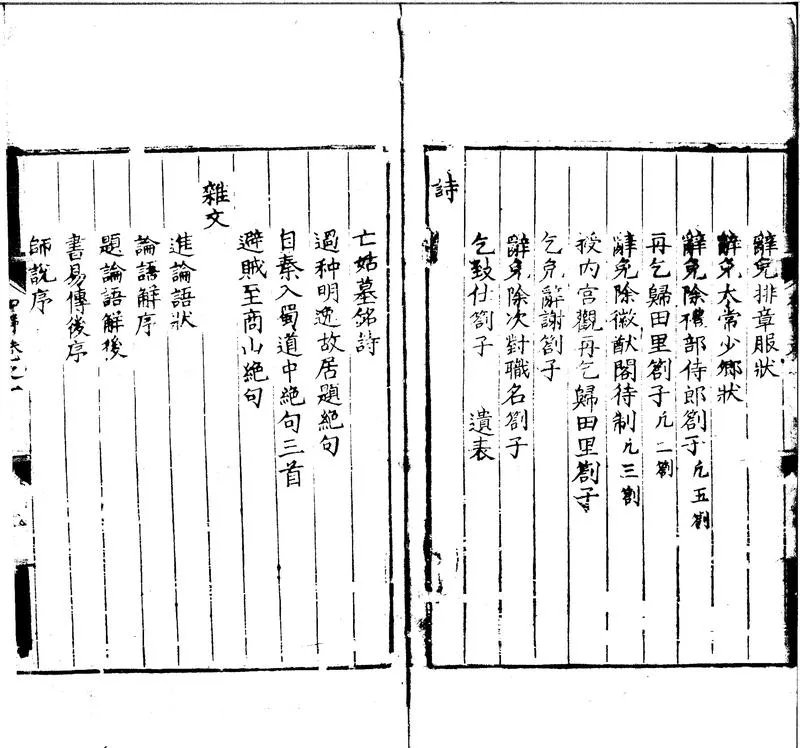 辭免排章服狀
辭免太常少卿狀
辭免除禮部侍郎劄子凡五劄
再乞歸田里劄子凡二劄
辭免除徽猷閣待制凡三劄
授內宮觀再乞歸田里劄子
乞免辭謝劄子
辭免除次對職名劄子
乞致仕劄子 遺表
詩
亡姑墓銘詩
過种明逸故居題絶句
自秦入蜀道中絶句三首
避賊至商山絶句
雜文
進論語狀
論語解序
題論語解後
書易傳後序
師說序